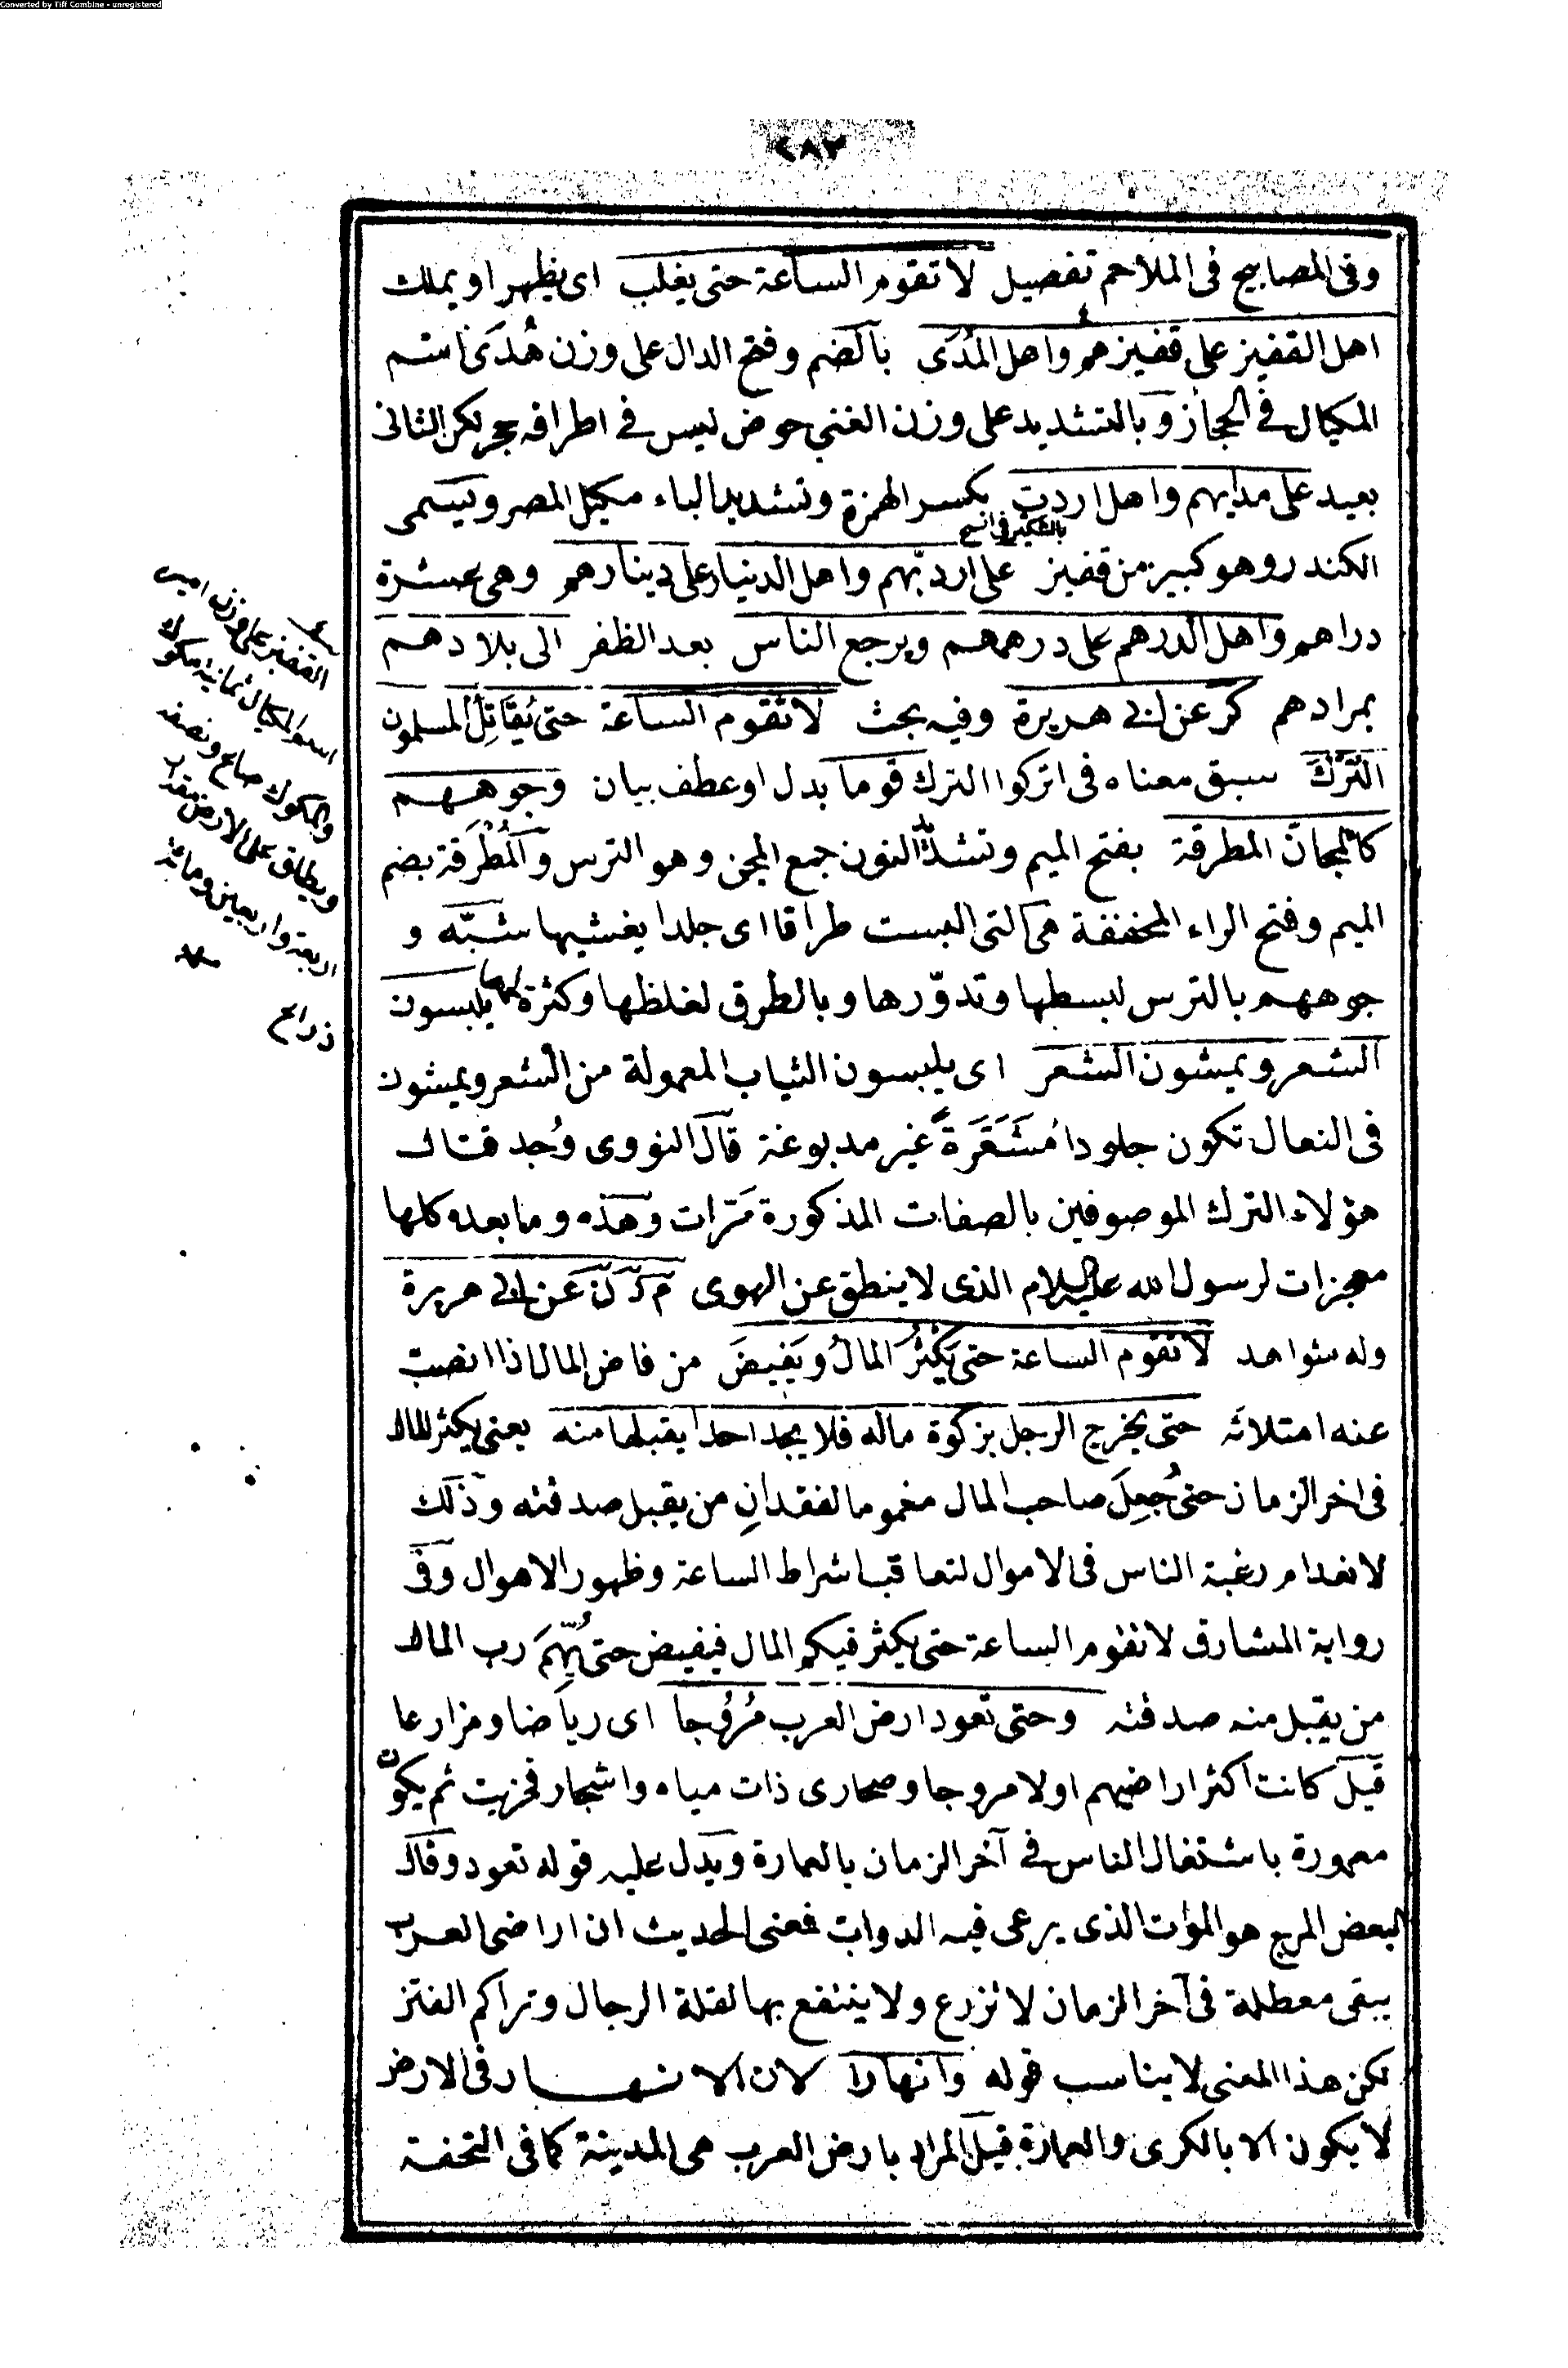 Converted by Tiff Combine - unregistered
٢٨٢
وفى المصابيح فى الملاحم تفصيل لا تقوم الساعة حتى يغلب اى يظهر او يملك
اهل القفيز على قفيزهم واهل المُدَى بالضم وفتح الدال على وزن هُدَى اسم
المكيال فى الحجاز وبالتشديد على وزن الغنى حوض ليس فى اطرافه حجر لكن الثانى
بعيد على مدايهم واهل اردب بكسر الهمزة وتشديد الباء مكيل المصر ويسمى
بالتنكير فى نسخ
الكندر وهو كبير من قفيز على اردبّهم واهل الدينار على دينارهم وهى عشرة
دراهم واهل الدرهم على درهمهم ويرجع الناس بعد الظفر الى بلادهم
بمرادهم كر عن ابى هريرة وفيه بحث لا تقوم الساعة حتى يُقَاتِلَ المسلمون
التُرْكَ سبق معناه فى اتركوا الترك قوما بدل او عطف بيان وجوههم
كالمجانّ المطرقة بفتح الميم وتشديد النون جمع المجن وهو الترس والمُطْرَقة بضم
الميم وفتح الراء المخففة هى التى البست طراقا اى جلدا يغشيها شبّه و
جوههم بالترس لبسطها وتدوّرها وبالطرق لغلظها وكثرة لحمها يلبسون
الشعر ويمشون الشعر اى يلبسون الثياب المعمولة من الشعر ويمشون
فى النعال تكون جلودا مُشَعَّرَةً غير مدبوغة قال النووى وُجد قتال
هؤلاء الترك الموصوفين بالصفات المذكورة مرّات وهذه وما بعده كلها
معجزات لرسول الله عليه السلام الذى لا ينطق عن الهوى م د ن عن ابى هريرة
وله شواهد لا تقوم الساعة حتى يَكْثُرَ المالُ ويَفِيضَ من فاض المال اذا انصبّ
عنه امتلائه حتى يخرج الرجل بزكوة ماله فلا يجد احدا يقبلها منه يعنى يكثر المال
فى اخر الزمان حتى جُعِلَ صاحب المال مغموما لفقدانِ من يقبل صدقته وذلك
لانعدام رغبة الناس فى الاموال لتعاقب اشراط الساعة وظهور الاهوال وفى
رواية المشارق لا تقوم الساعة حتى يكثر فيكم المال فيفيض حتى يُهِمَّ رب المال
من يقبل منه صدقته وحتى تعود ارض العرب مُرُوجا اى رياضا ومزارعا
قيل كانت اكثر اراضيهم اولا مروجا وصحارى ذات مياه واشجار فخربت ثم يكون
معمورة باشتغال الناس فى آخر الزمان بالعمارة ويدل عليه قوله تعود وقال
البعض المرج هو الموات الذى يرعى فيه الدواب فمعنى الحديث ان اراضى العرب
يبقى معطلة فى آخر الزمان لا تزرع ولا ينتفع بها لقلة الرجال وتراكم الفتن
لكن هذا المعنى لا يناسب قوله وانهارا لان الانهار فى الارض
لا يكون الا بالكرى والعمارة قيل المراد بارض العرب هى المدينة كما فى التحفة
القفيز على وزن امير
اسم المكيال ثمانية مكوك
والمكوك صاع ونصفه
ويطلق على الارض مقدار
اربعة واربعين ومائة
ذراع